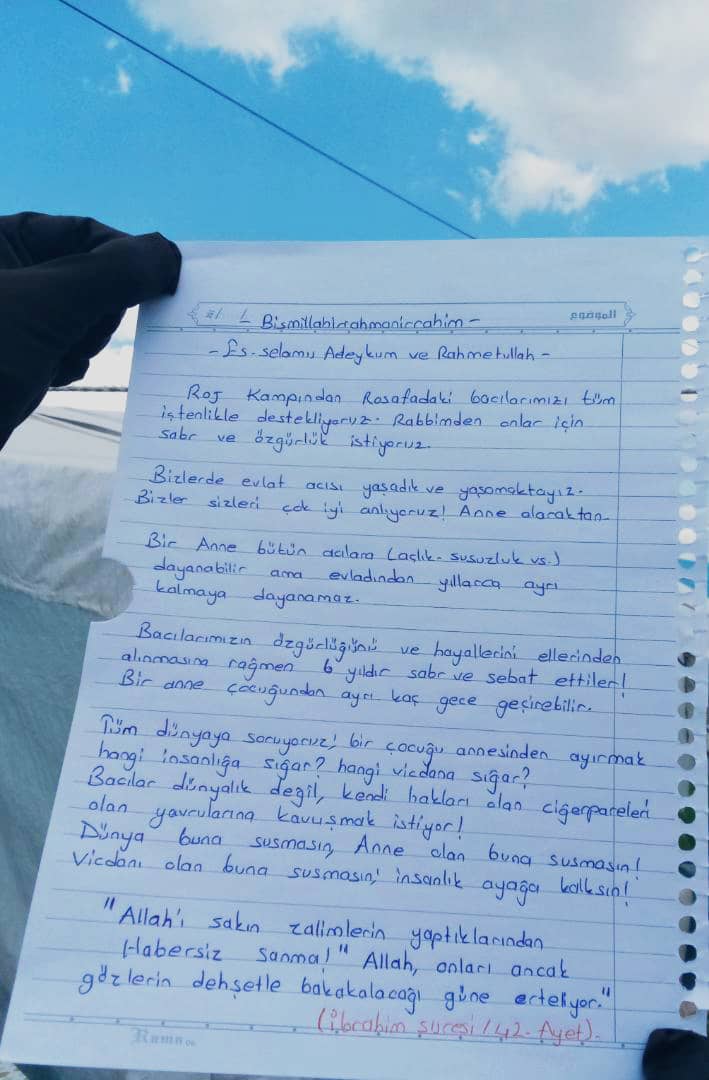 الموضوع
Bismillahirrahmanirrahim -
- Es. selamu Adeykum ve Rahmetullah -
Roj Kampından Rosafadaki bacılarımızı tüm
içtenlikle destekliyoruz. Rabbimden onlar için
sabr ve özgürlük istiyoruz.
Bizlerde evlat acısı yaşadık ve yaşamaktayız.
Bizler sizleri çok iyi anlıyoruz! Anne olaraktan.
Bir Anne bütün acılara (açlık. susuzluk vs.)
dayanabilir ama evladından yıllarca ayrı
kalmaya dayanamaz.
Bacılarımızın özgürlüğünü ve hayallerini ellerinden
alınmasına rağmen 6 yıldır sabr ve sebat ettiler!
Bir anne çocuğundan ayrı kaç gece geçirebilir.
Tüm dünyaya soruyoruz! bir çocuğu annesinden ayırmak
hangi insanlığa sığar? hangi vicdana sığar?
Bacılar dünyalık değil, kendi hakları olan ciğerpareleri
olan yavrularına kavuşmak istiyor!
Dünya buna susmasın, Anne olan buna susmasın!
Vicdanı olan buna susmasın! insanlık ayağa kalksın!
"Allah'ı sakın zalimlerin yaptıklarından
Habersiz sanma!" Allah, onları ancak
gözlerin dehşetle bakakalacağı güne erteliyor."
(İbrahim suresi / 42. Ayet).
Rama